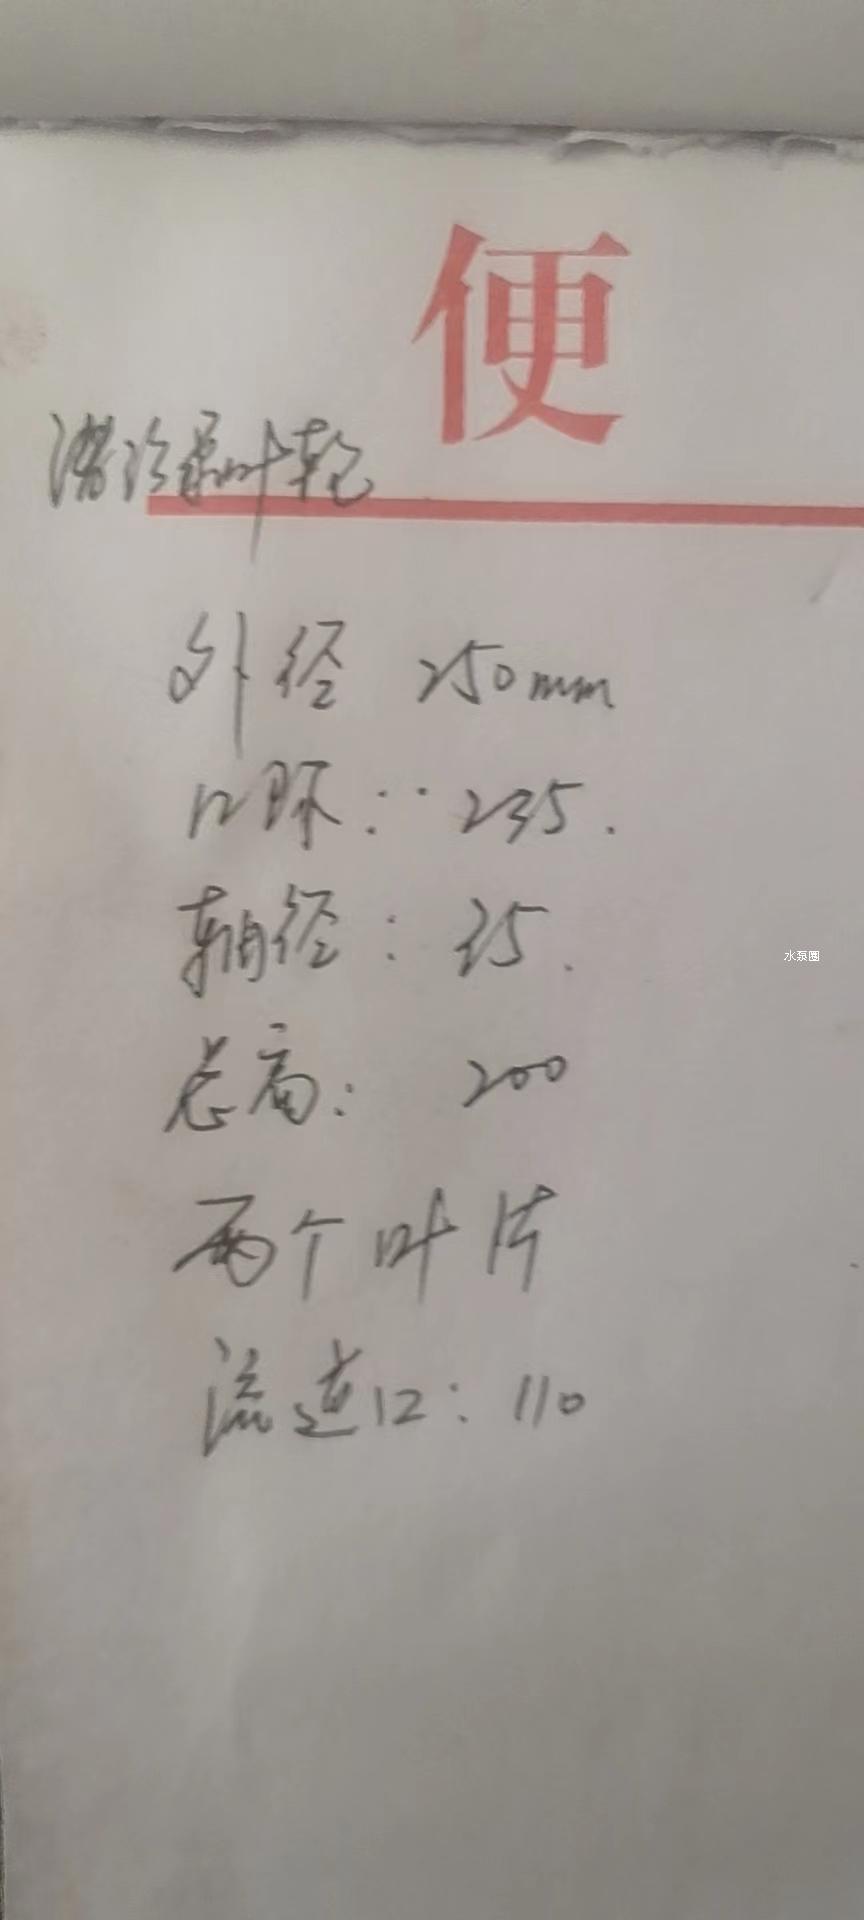 便
潜污泵叶轮
外径 250mm
口环: 235.
轴径: 35.
水泵圈
总高: 200
两个叶片
流道口: 110